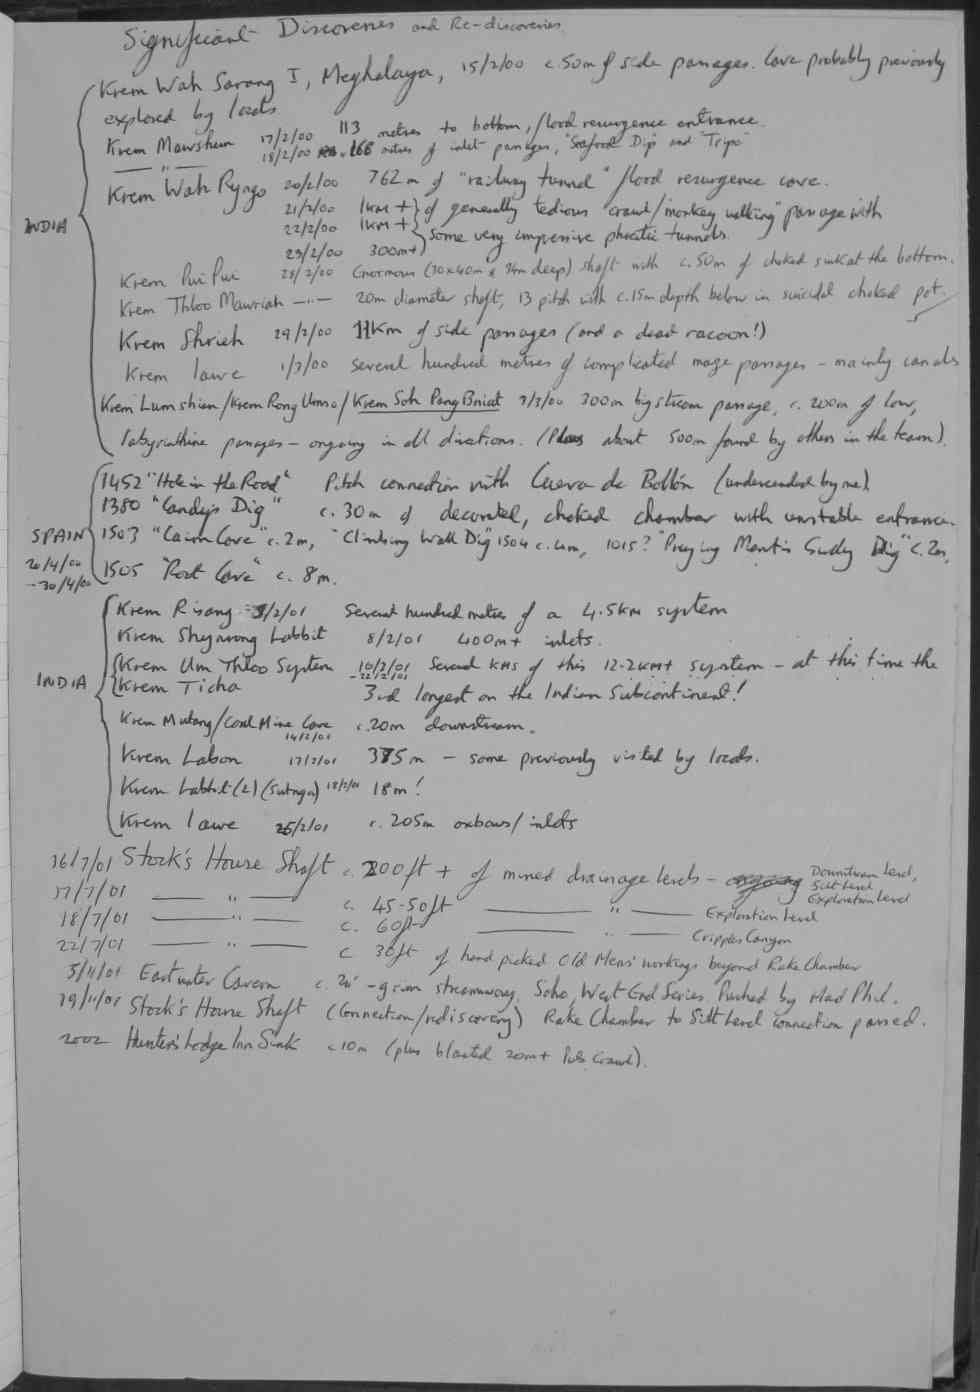 Significant Discoveries and Re-discoveries.
Krem Wah Sarang I, Meghalaya, 15/2/00 c.50m of side passages. Cave probably previously
explored by locals
Krem Mawshun 17/2/00 113 metres to bottom, flood resurgence entrance.
— " — 18/2/00 168 metres of inlet passages, "Seafood Dip" and "Tripe"
Krem Wah Ryngo 20/2/00 762m of "railway tunnel" flood resurgence cave.
INDIA
21/2/00 1km + of generally tedious "crawl/monkey walking" passage with
22/2/00 1km + some very impressive phreatic tunnels.
23/2/00 300m+
Krem Pui Pui 28/2/00 Enormous (30x40m x 34m deep) shaft with c.50m of choked sink at the bottom.
Krem Thloo Mawriah — " — 20m diameter shaft, 13 pitch with c.15m depth below in suicidal choked pot.
Krem Shrieh 29/2/00 1km of side passages (and a dead racoon!)
Krem Iawe 1/3/00 Several hundred metres of complicated maze passages - mainly canals
Krem Lumshian/Krem Rong Umso/Krem Soh Pang Bniat 3/3/00 300m big stream passage, c.200m of low,
labyrinthine passages - ongoing in all directions. (Plus about 500m found by others in the team).
1452 "Hole in the Road" Pitch connection with Cueva de Bollón (undescended by me).
1380 "Sandy's Dig" c.30m of decorated, choked chamber with unstable entrance.
SPAIN 1503 "Cairn Cave" c.2m, "Climbing Wall Dig" 1504 c.4m, 1015? "Praying Mantis Gully Dig" c.2m,
20/4/00
-30/4/00 1505 "Root Cave" c.8m.
Krem Risang 5/2/01 Several hundred metres of a 4.5km system
Krem Shynrong Labbit 8/2/01 400m+ inlets.
INDIA Krem Um Thloo System 10/2/01 Several kms of this 12.2km+ system - at this time the
Krem Ticha -22/2/01 3rd longest on the Indian Subcontinent!
Krem Mutang/Coal Mine Cave 14/2/01 c.20m downstream.
Krem Labon 17/2/01 375m - some previously visited by locals.
Krem Labbit (2) (Sutnga) 18/2/01 18m!
Krem Iawe 25/2/01 c.205m oxbows/inlets
16/7/01 Stock's House Shaft c.200ft + of mined drainage levels - Downstream Level,
Silt Level
Exploration Level
17/7/01 — " — c. 45-50ft — " — Exploration Level
18/7/01 — " — c. 60ft — " — Cripples Canyon
22/7/01 — " — c 30ft of hand picked Old Mens' workings beyond Rake Chamber
5/11/01 Eastwater Cavern c.20' - grim streamway, Soho, West End Series. Pushed by Mad Phil.
19/11/01 Stock's House Shaft (Connection/rediscovery) Rake Chamber to Silt Level connection passed.
2002 Hunters Lodge Inn Sink c10m (plus blasted 20m+ Pub Crawl).